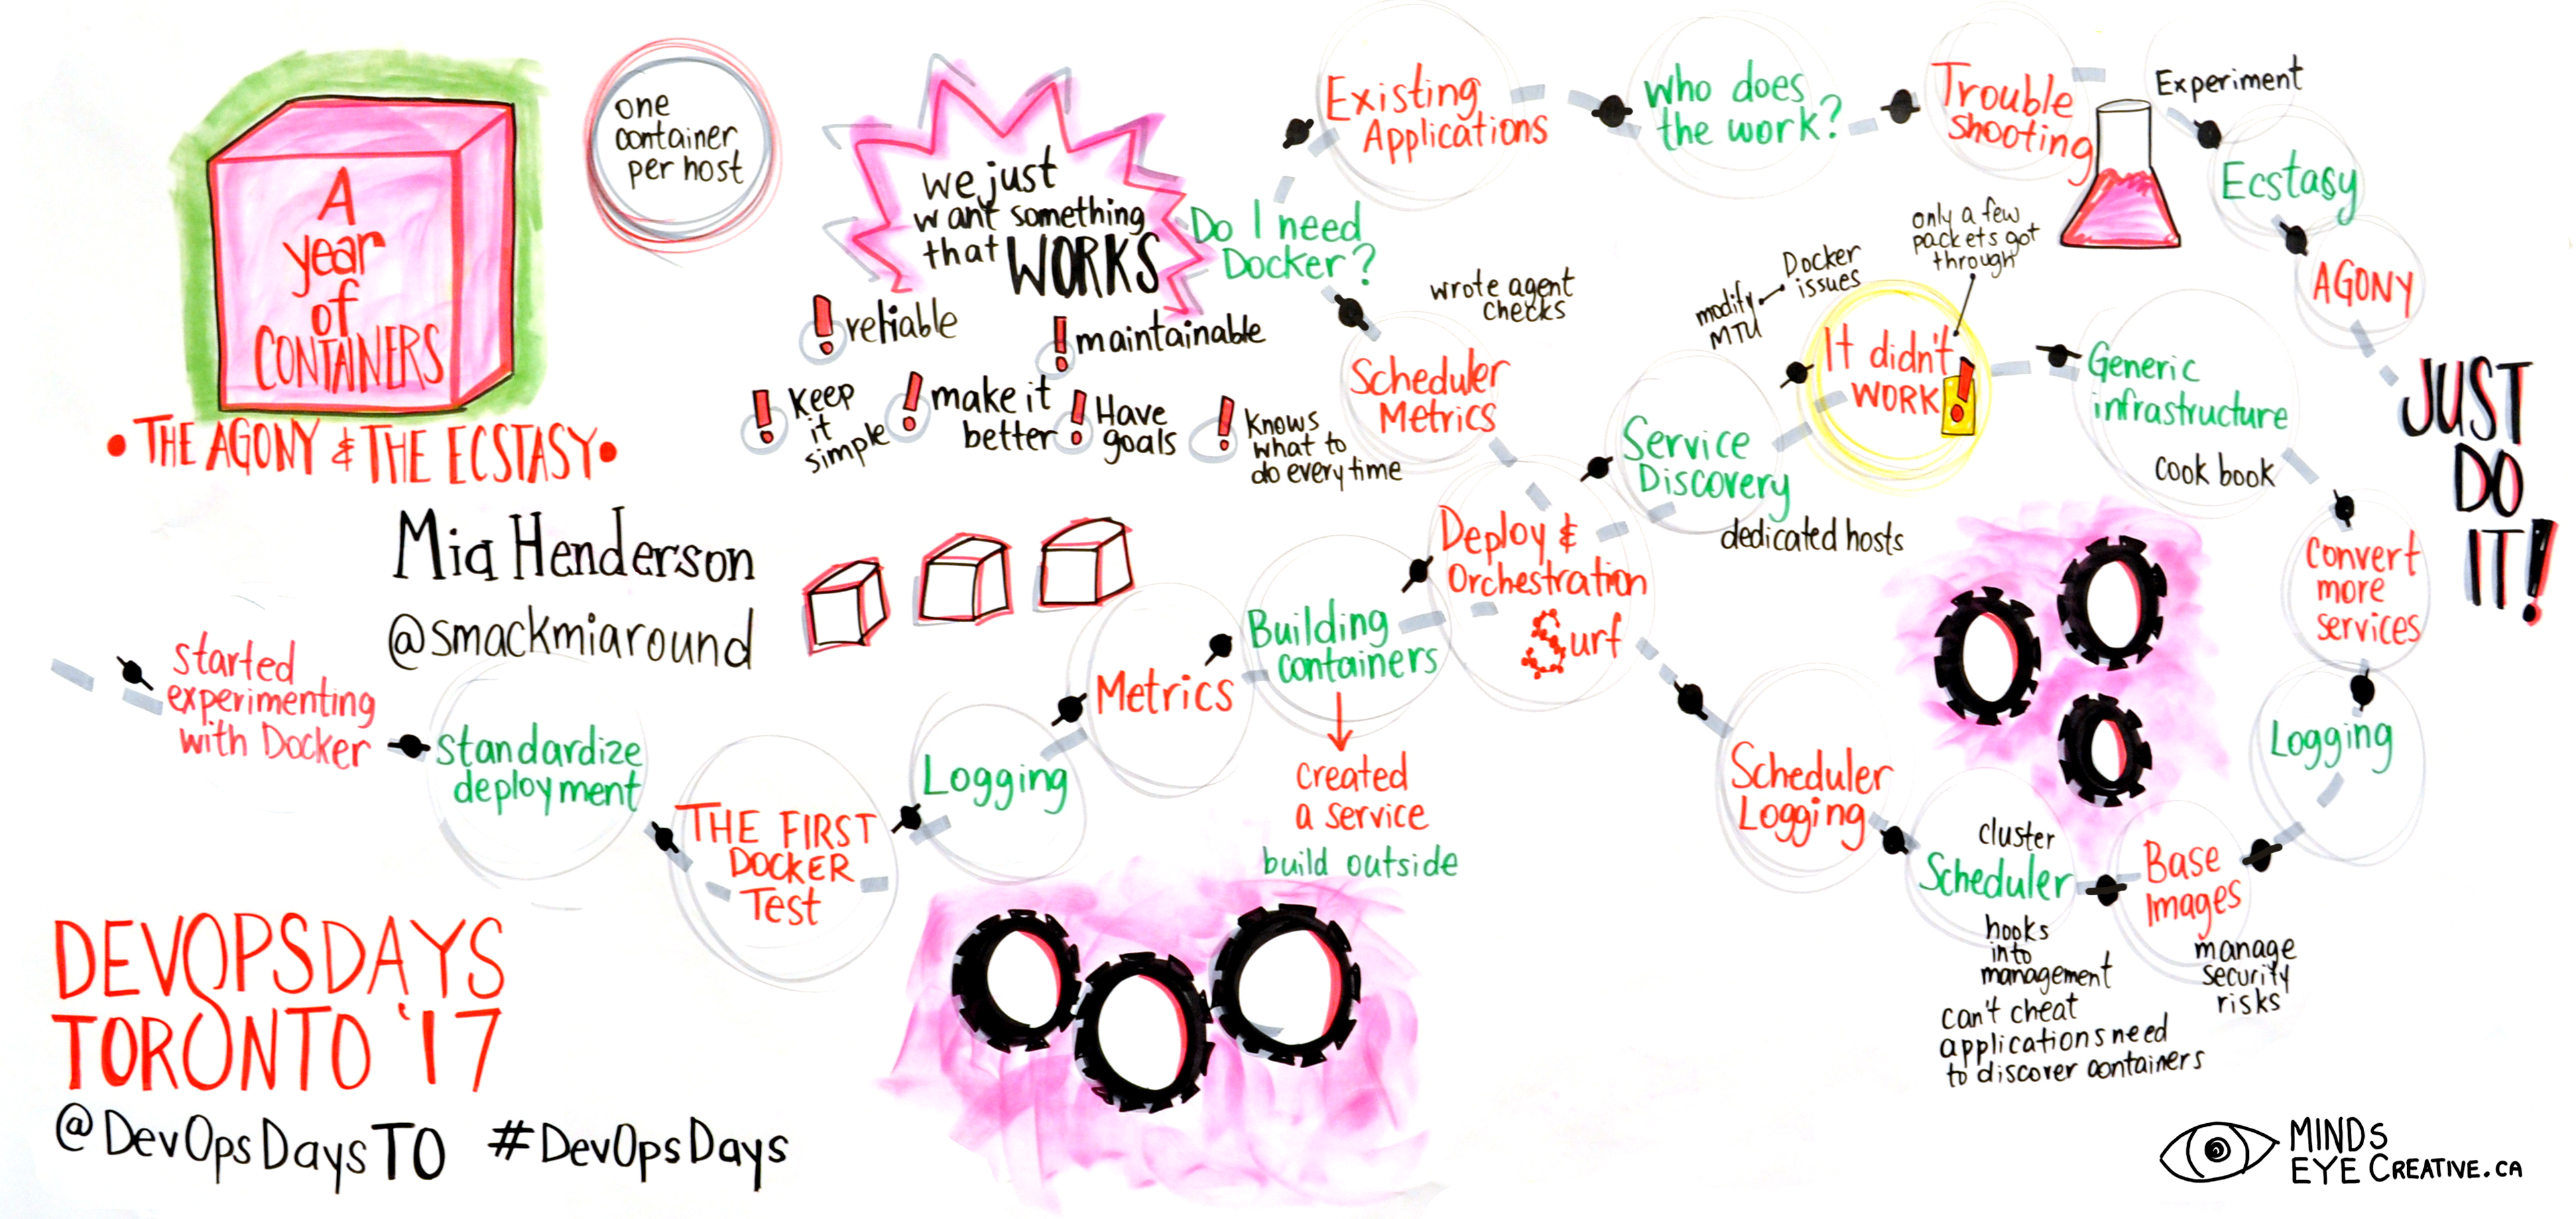 A
year
of
CONTAINERS
• THE AGONY & THE ECSTASY •
Mia Henderson
@smackmiaround
one
container
per host
we just
want something
that WORKS
reliable
maintainable
Keep
it
simple
make it
better
Have
goals
Knows
what to
do every time
started
experimenting
with Docker
Standardize
deployment
THE FIRST
DOCKER
TEST
Logging
Metrics
Building
containers
created
a service
build outside
Deploy &
Orchestration
Surf
Scheduler
Metrics
wrote agent
checks
Do I need
Docker?
Existing
Applications
who does
the work?
Trouble
shooting
Experiment
Ecstasy
AGONY
JUST
DO
IT!
Service
Discovery
dedicated hosts
modify
MTU
Docker
issues
only a few
packets got
through
It didn't
WORK!
Generic
infrastructure
cook book
convert
more
services
Logging
Base
Images
manage
security
risks
cluster
Scheduler
hooks
into
management
can't cheat
applications need
to discover containers
Scheduler
Logging
DEVOPSDAYS
TORONTO '17
@DevOpsDaysTO #DevOpsDays
MINDS
EYE CREATIVE.CA